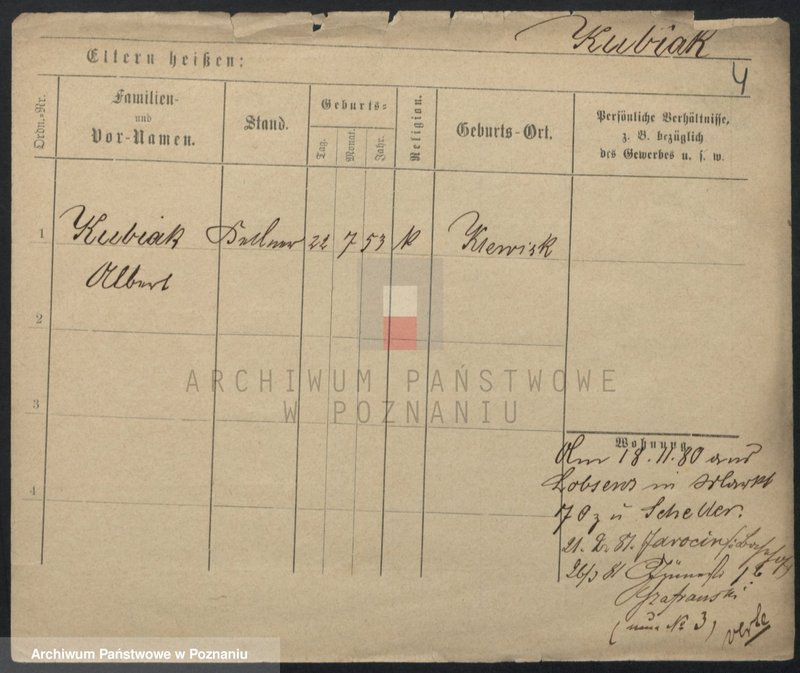 Kubiak
4
Eltern heißen:
Ordn.-Nr.
Familien-
und
Vor-Namen.
Stand.
Geburts-
Tag.
Monat.
Jahr.
Religion.
Geburts-Ort.
Persönliche Verhältnisse,
z. B. bezüglich
des Gewerbes u. s. w.
1 Kubiak Kellner 22 7 53 k
Albert
2
3
4
ARCHIWUM PAŃSTWOWE
W POZNANIU
Wohnung
Am 18.11.80 aus
Lobsens in Markt
70 zu Scheller.
21. 2. 81. Jarocin
Szafranski
(neue No 3) verte
Archiwum Państwowe w Poznaniu